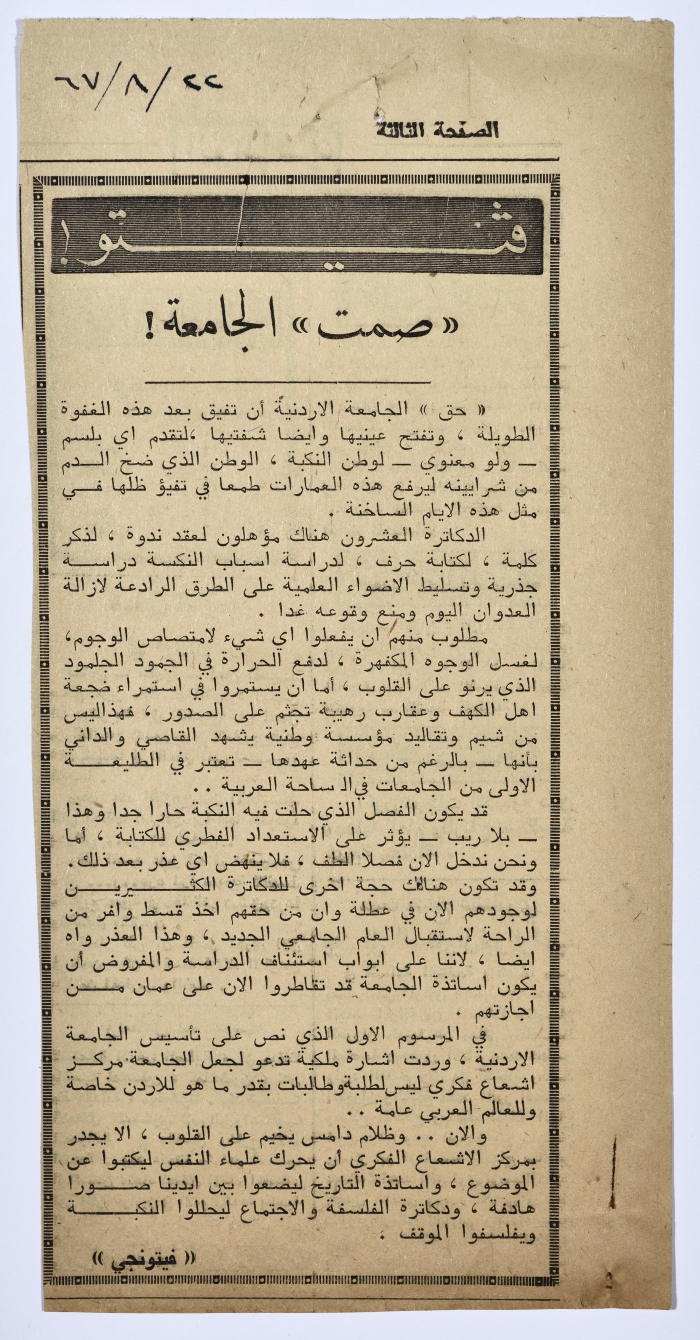 ٦٧/٨/٢٢
الصفحة الثالثة
ڤيتو !
« صمت » الجامعة !
« حق » الجامعة الاردنية أن تفيق بعد هذه الغفوة
الطويلة ، وتفتح عينيها وايضا شفتيها ،لتقدم اي بلسم
ـ ولو معنوي ـ لوطن النكبة ، الوطن الذي ضخ الـدم
من شرايينه ليرفع هذه العمارات طمعا في تفيؤ ظلها فـي
مثل هذه الايام الساخنة .
الدكاترة العشرون هناك مؤهلون لعقد ندوة ، لذكر
كلمة ، لكتابة حرف ، لدراسة اسباب النكسة دراسـة
جذرية وتسليط الاضواء العلمية على الطرق الرادعة لازالة
العدوان اليوم ومنع وقوعه غدا .
مطلوب منهم ان يفعلوا اي شيء لامتصاص الوجوم،
لغسل الوجوه المكفهرة ، لدفع الحرارة في الجمود الجلمود
الذي يرنو على القلوب ، أما ان يستمروا في استمراء ضجعة
اهل الكهف وعقارب رهيبة تجثم على الصدور ، فهذاليس
من شيم وتقاليد مؤسسة وطنية يشهد القاصي والداني
بأنها ـ بالرغم من حداثة عهدها ـ تعتبر في الطليعـة
الاولى من الجامعات في الساحة العربية . .
قد يكون الفصل الذي حلت فيه النكبة حارا جدا وهذا
ـ بلا ريب ـ يؤثر على الاستعداد الفطري للكتابة ، أما
ونحن ندخل الان فصلا الطف ، فلا ينهض اي عذر بعد ذلك.
وقد تكون هنالك حجة اخرى للدكاترة الكثـيريـن
لوجودهم الان في عطلة وان من حقهم اخذ قسط وافر من
الراحة لاستقبال العام الجامعي الجديد ، وهذا العذر واه
ايضا ، لاننا على ابواب استئناف الدراسة والمفروض أن
يكون اساتذة الجامعة قد تقاطروا الان على عمان مـن
اجازتهم .
في المرسوم الاول الذي نص على تأسيس الجامعة
الاردنية ، وردت اشارة ملكية تدعو لجعل الجامعة مركـز
اشعاع فكري ليس لطلبة وطالبات بقدر ما هو للاردن خاصة
وللعالم العربي عامة . .
والان . . وظلام دامس يخيم على القلوب ، الا يجدر
بمركز الاشعاع الفكري أن يحرك علماء النفس ليكتبوا عن
الموضوع ، واساتذة التاريخ ليضعوا بين ايدينا صـورا
هادفة ، ودكاترة الفلسفة والاجتماع ليحللوا النكبـة
ويفلسفوا الموقف .
« فيتونجي »